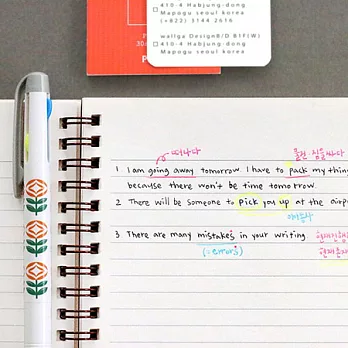 410-4 Habjung-dong
Mapogu seoul korea
(+822) 3144 2616
wallga Design B/D B1F(W)
410-4 Habjung-dong
Mapogu seoul korea
떠나다
물건·짐을싸다
1. I am going away tomorrow. I have to pack my thin
because there won't be time tomorrow.
2. There will be someone to pick you up at the airp
3. There are many mistakes in your writing.
(=errors)